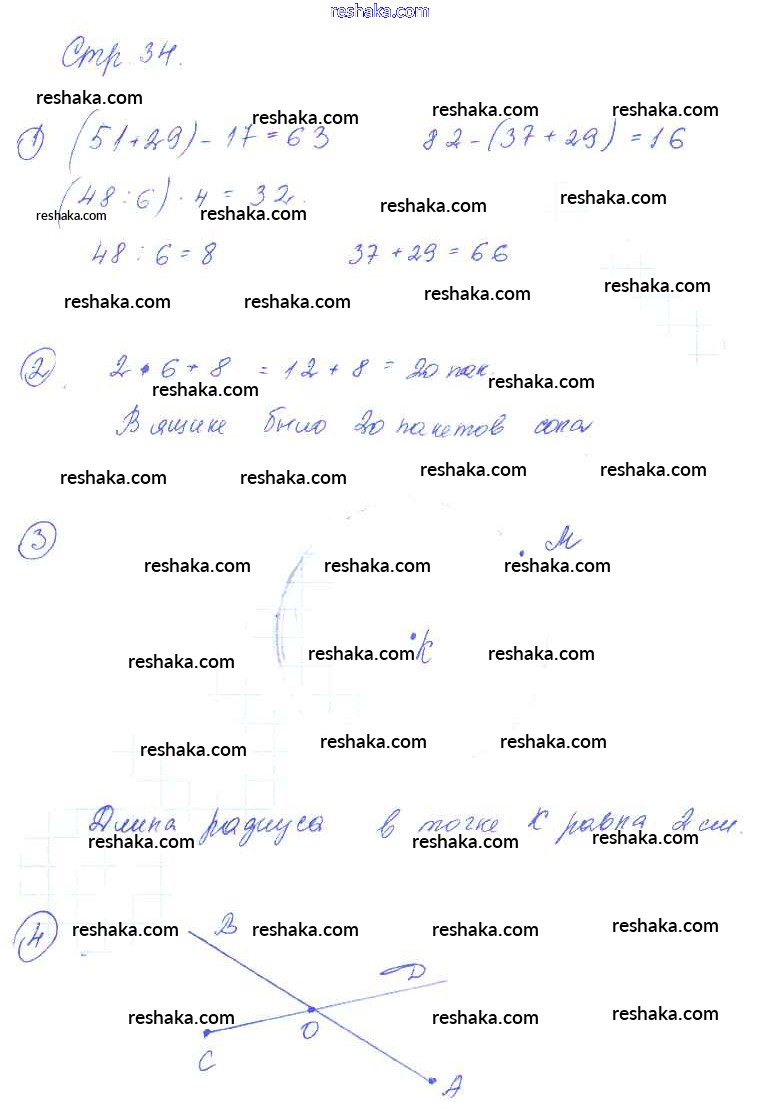 reshaka.com
Стр. 34.
reshaka.com reshaka.com reshaka.com reshaka.com
1) (51+29)-17=63 82-(37+29)=16
(48:6)·4=32.
reshaka.com reshaka.com reshaka.com reshaka.com
48:6=8 37+29=66
reshaka.com reshaka.com reshaka.com reshaka.com
2 2·6+8=12+8=20 пак.
reshaka.com reshaka.com
В ящике было 20 пакетов сока
reshaka.com reshaka.com reshaka.com reshaka.com
3 М
reshaka.com reshaka.com reshaka.com
К
reshaka.com reshaka.com reshaka.com
reshaka.com reshaka.com reshaka.com
Длина радиуса в точке К равна 2 см.
reshaka.com reshaka.com reshaka.com
4 В
reshaka.com reshaka.com reshaka.com reshaka.com
D
reshaka.com О reshaka.com reshaka.com
С
А